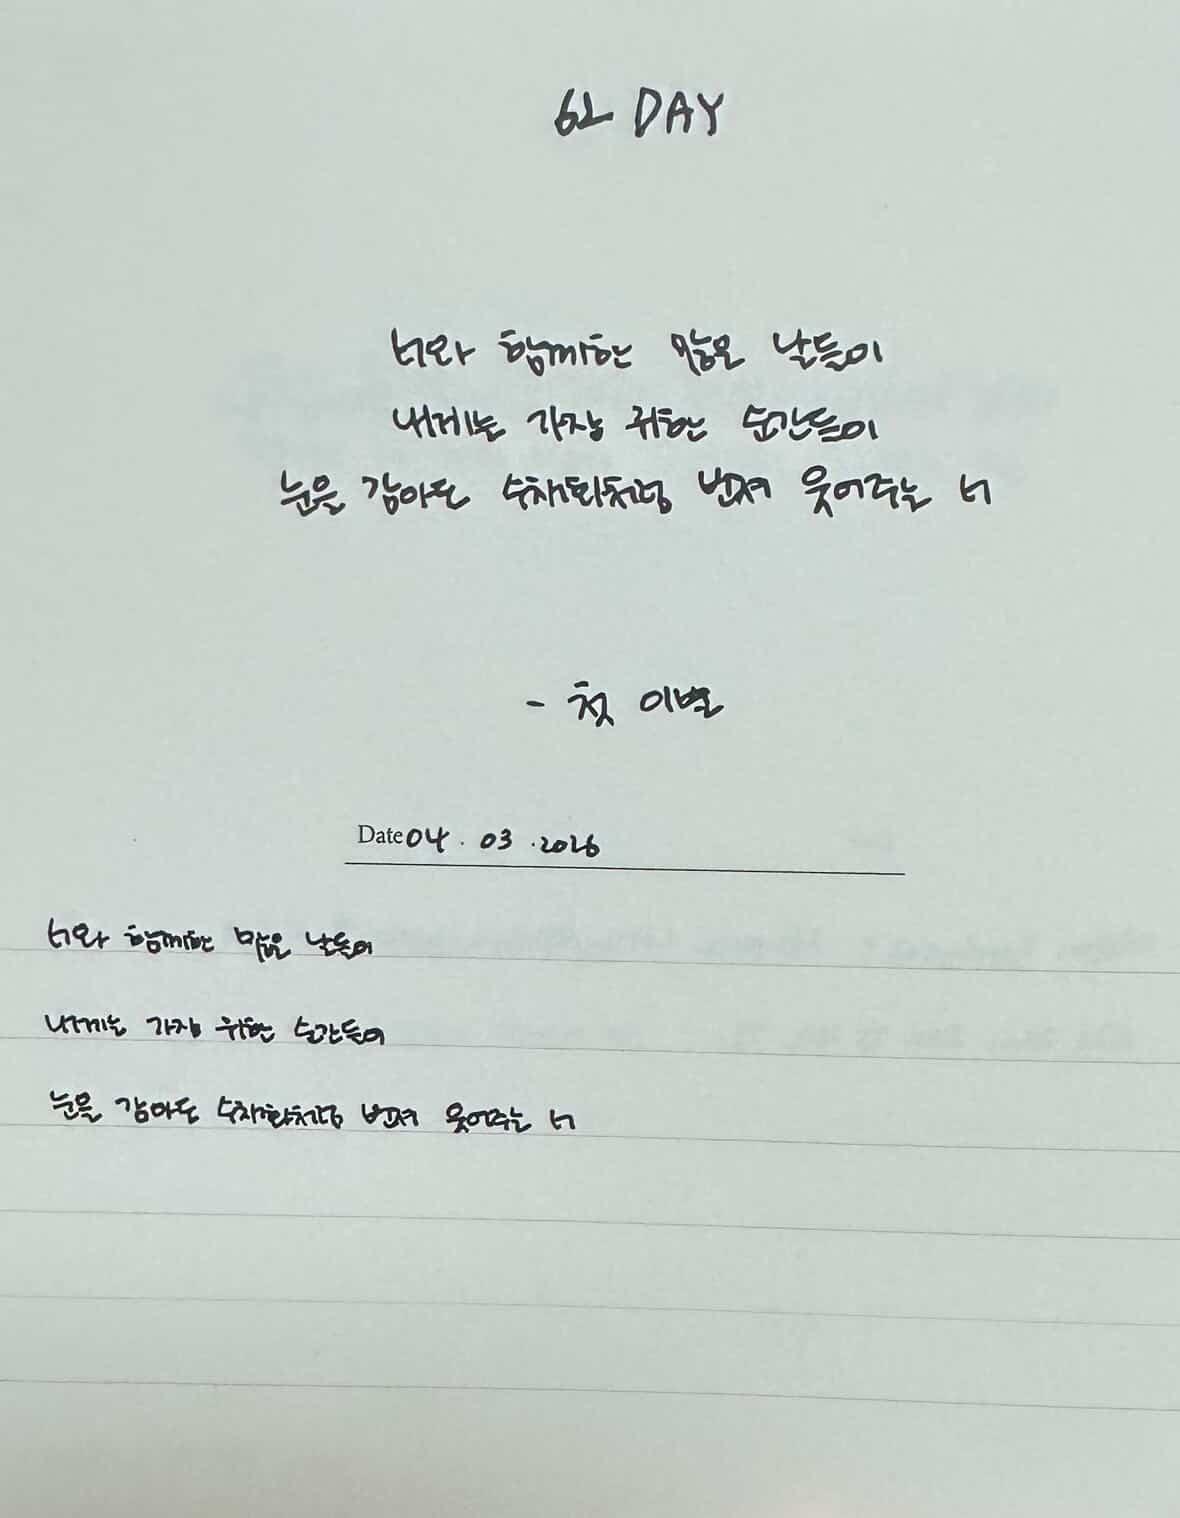 62 DAY
너와 함께하는 많은 날들이
내게는 가장 귀한 순간들이
눈을 감아도 수채화처럼 번져 웃어주는 너
- 첫 이별
Date 04 . 03 . 2026
너와 함께하는 많은 날들이
내게는 가장 귀한 순간들이
눈을 감아도 수채화처럼 번져 웃어주는 너